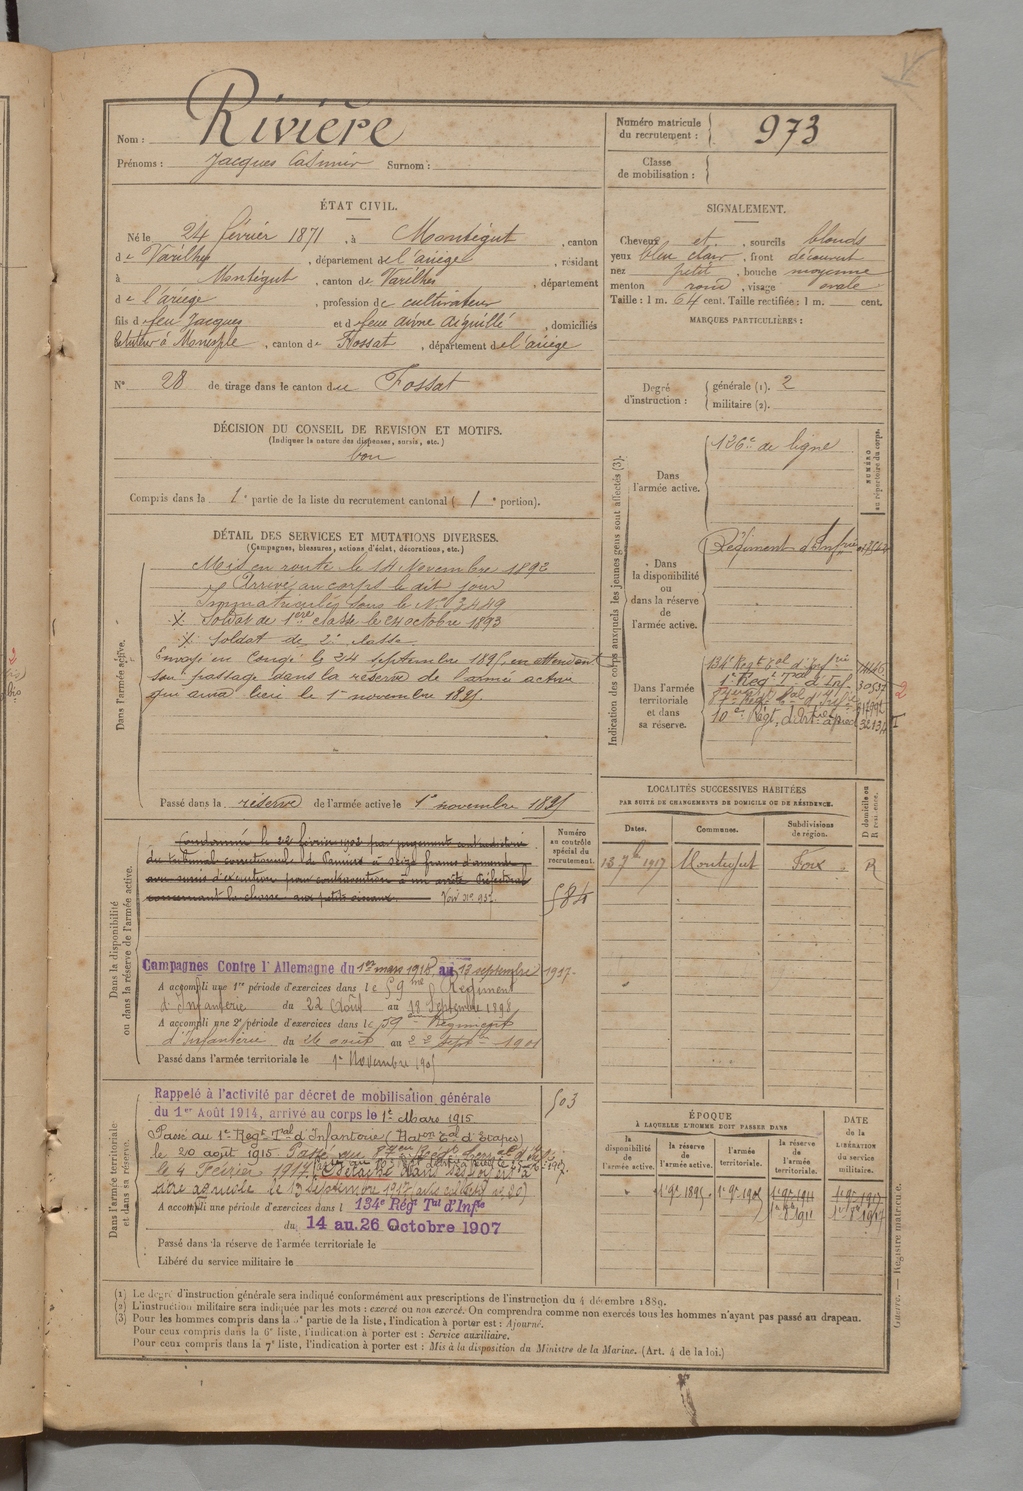 Nom : Rivière
Prénoms : Jacques Casimir Surnom :
ÉTAT CIVIL.
Né le 24 février 1871, à Montégut, canton
de Varilhes, département de l'ariège, résidant
à Montégut, canton de Varilhes, département
de l'ariège, profession de cultivateur
fils de feu Jacques et de feue, domiciliés
, canton de Fossat, département de l'ariège
N° 28 de tirage dans le canton du Fossat
DÉCISION DU CONSEIL DE REVISION ET MOTIFS.
(Indiquer la nature des dispenses, sursis, etc.)
bon
Compris dans la 1e partie de la liste du recrutement cantonal (1e portion).
DÉTAIL DES SERVICES ET MUTATIONS DIVERSES.
(Campagnes, blessures, actions d'éclat, décorations, etc.)
Dans l'armée active.
Mis en route le 14 Novembre 1892
Arrivé au corps le dit jour
Immatriculé sous le N° 3449
Soldat de 1ère classe le 24 octobre 1893
Soldat de 2e classe
Envoyé en congé le 24 septembre 1895, en attendant
son passage dans la réserve de l'armée active
qui aura lieu le 1er novembre 1895.
Passé dans la réserve de l'armée active le 1er novembre 1895
Dans la disponibilité
ou dans la réserve de l'armée active.
Condamné le 22 février 1902 par jugement contradictoire
du tribunal correctionnel de Pamiers à seize francs d'amende
avec sursis d'exécution pour contravention à un arrêté Préfectoral
concernant la chasse aux petits oiseaux.
Numéro
au contrôle
spécial du
recrutement.
584
Campagnes Contre l'Allemagne du 1er mars 1915 au 13 septembre 1917.
A accompli une 1re période d'exercices dans le 59me Régiment
d'Infanterie du 22 Août au 18 Septembre 1898
A accompli une 2e période d'exercices dans le 59e Régiment
d'Infanterie du 26 août au 22 Septbre 1901
Passé dans l'armée territoriale le 1er Novembre 1905
Dans l'armée territoriale
et dans sa réserve.
Rappelé à l'activité par décret de mobilisation générale
du 1er Août 1914, arrivé au corps le 1er Mars 1915
503
Passé au 1er Régt Tal d'Infanterie
le 20 août 1915. Passé au
le 4 Février 1917
agricole le 13 septembre 1917
A accompli une période d'exercices dans l 134e Régt Tal d'Infie
du 14 au 26 Octobre 1907
Passé dans la réserve de l'armée territoriale le
Libéré du service militaire le
Numéro matricule
du recrutement : 973
Classe
de mobilisation :
SIGNALEMENT.
Cheveux et, sourcils blonds
yeux bleu clair, front découvert
nez petit, bouche moyenne
menton rond, visage ovale
Taille : 1 m. 64 cent. Taille rectifiée : 1 m. cent.
MARQUES PARTICULIÈRES :
Degré
d'instruction :
générale (1). 2
militaire (2).
Indication des corps auxquels les jeunes gens sont affectés (3).
NUMÉRO
au répertoire du corps.
Dans
l'armée active.
126e de ligne
Dans
la disponibilité
ou
dans la réserve
de
l'armée active.
Régiment d'Infrie
Dans l'armée
territoriale
et dans
sa réserve.
134e Régt Tal d'Infrie
1er Régt Tal d'Inf.
10e Régt d'Artie à pied
LOCALITÉS SUCCESSIVES HABITÉES
PAR SUITE DE CHANGEMENTS DE DOMICILE OU DE RÉSIDENCE.
Dates. Communes. Subdivisions
de région. D. domicile ou
R. résidence.
13 7bre 1917 Montégut Foix R
ÉPOQUE
À LAQUELLE L'HOMME DOIT PASSER DANS
DATE
de la
LIBÉRATION
du service
militaire.
la
disponibilité
de
l'armée active.
la réserve
de
l'armée active.
l'armée
territoriale.
la réserve
de l'armée
territoriale.
1er 9bre 1895 1er 9bre 1905 1er 9bre 1911 1er 9bre 1917
1er 8bre 1911 1er 8bre 1917
(1) Le degré d'instruction générale sera indiqué conformément aux prescriptions de l'instruction du 4 décembre 1889.
(2) L'instruction militaire sera indiquée par les mots : exercé ou non exercé. On comprendra comme non exercés tous les hommes n'ayant pas passé au drapeau.
(3) Pour les hommes compris dans la 5e partie de la liste, l'indication à porter est : Ajourné.
Pour ceux compris dans la 6e liste, l'indication à porter est : Service auxiliaire.
Pour ceux compris dans la 7e liste, l'indication à porter est : Mis à la disposition du Ministre de la Marine. (Art. 4 de la loi.)
Guerre. — Registre matricule.